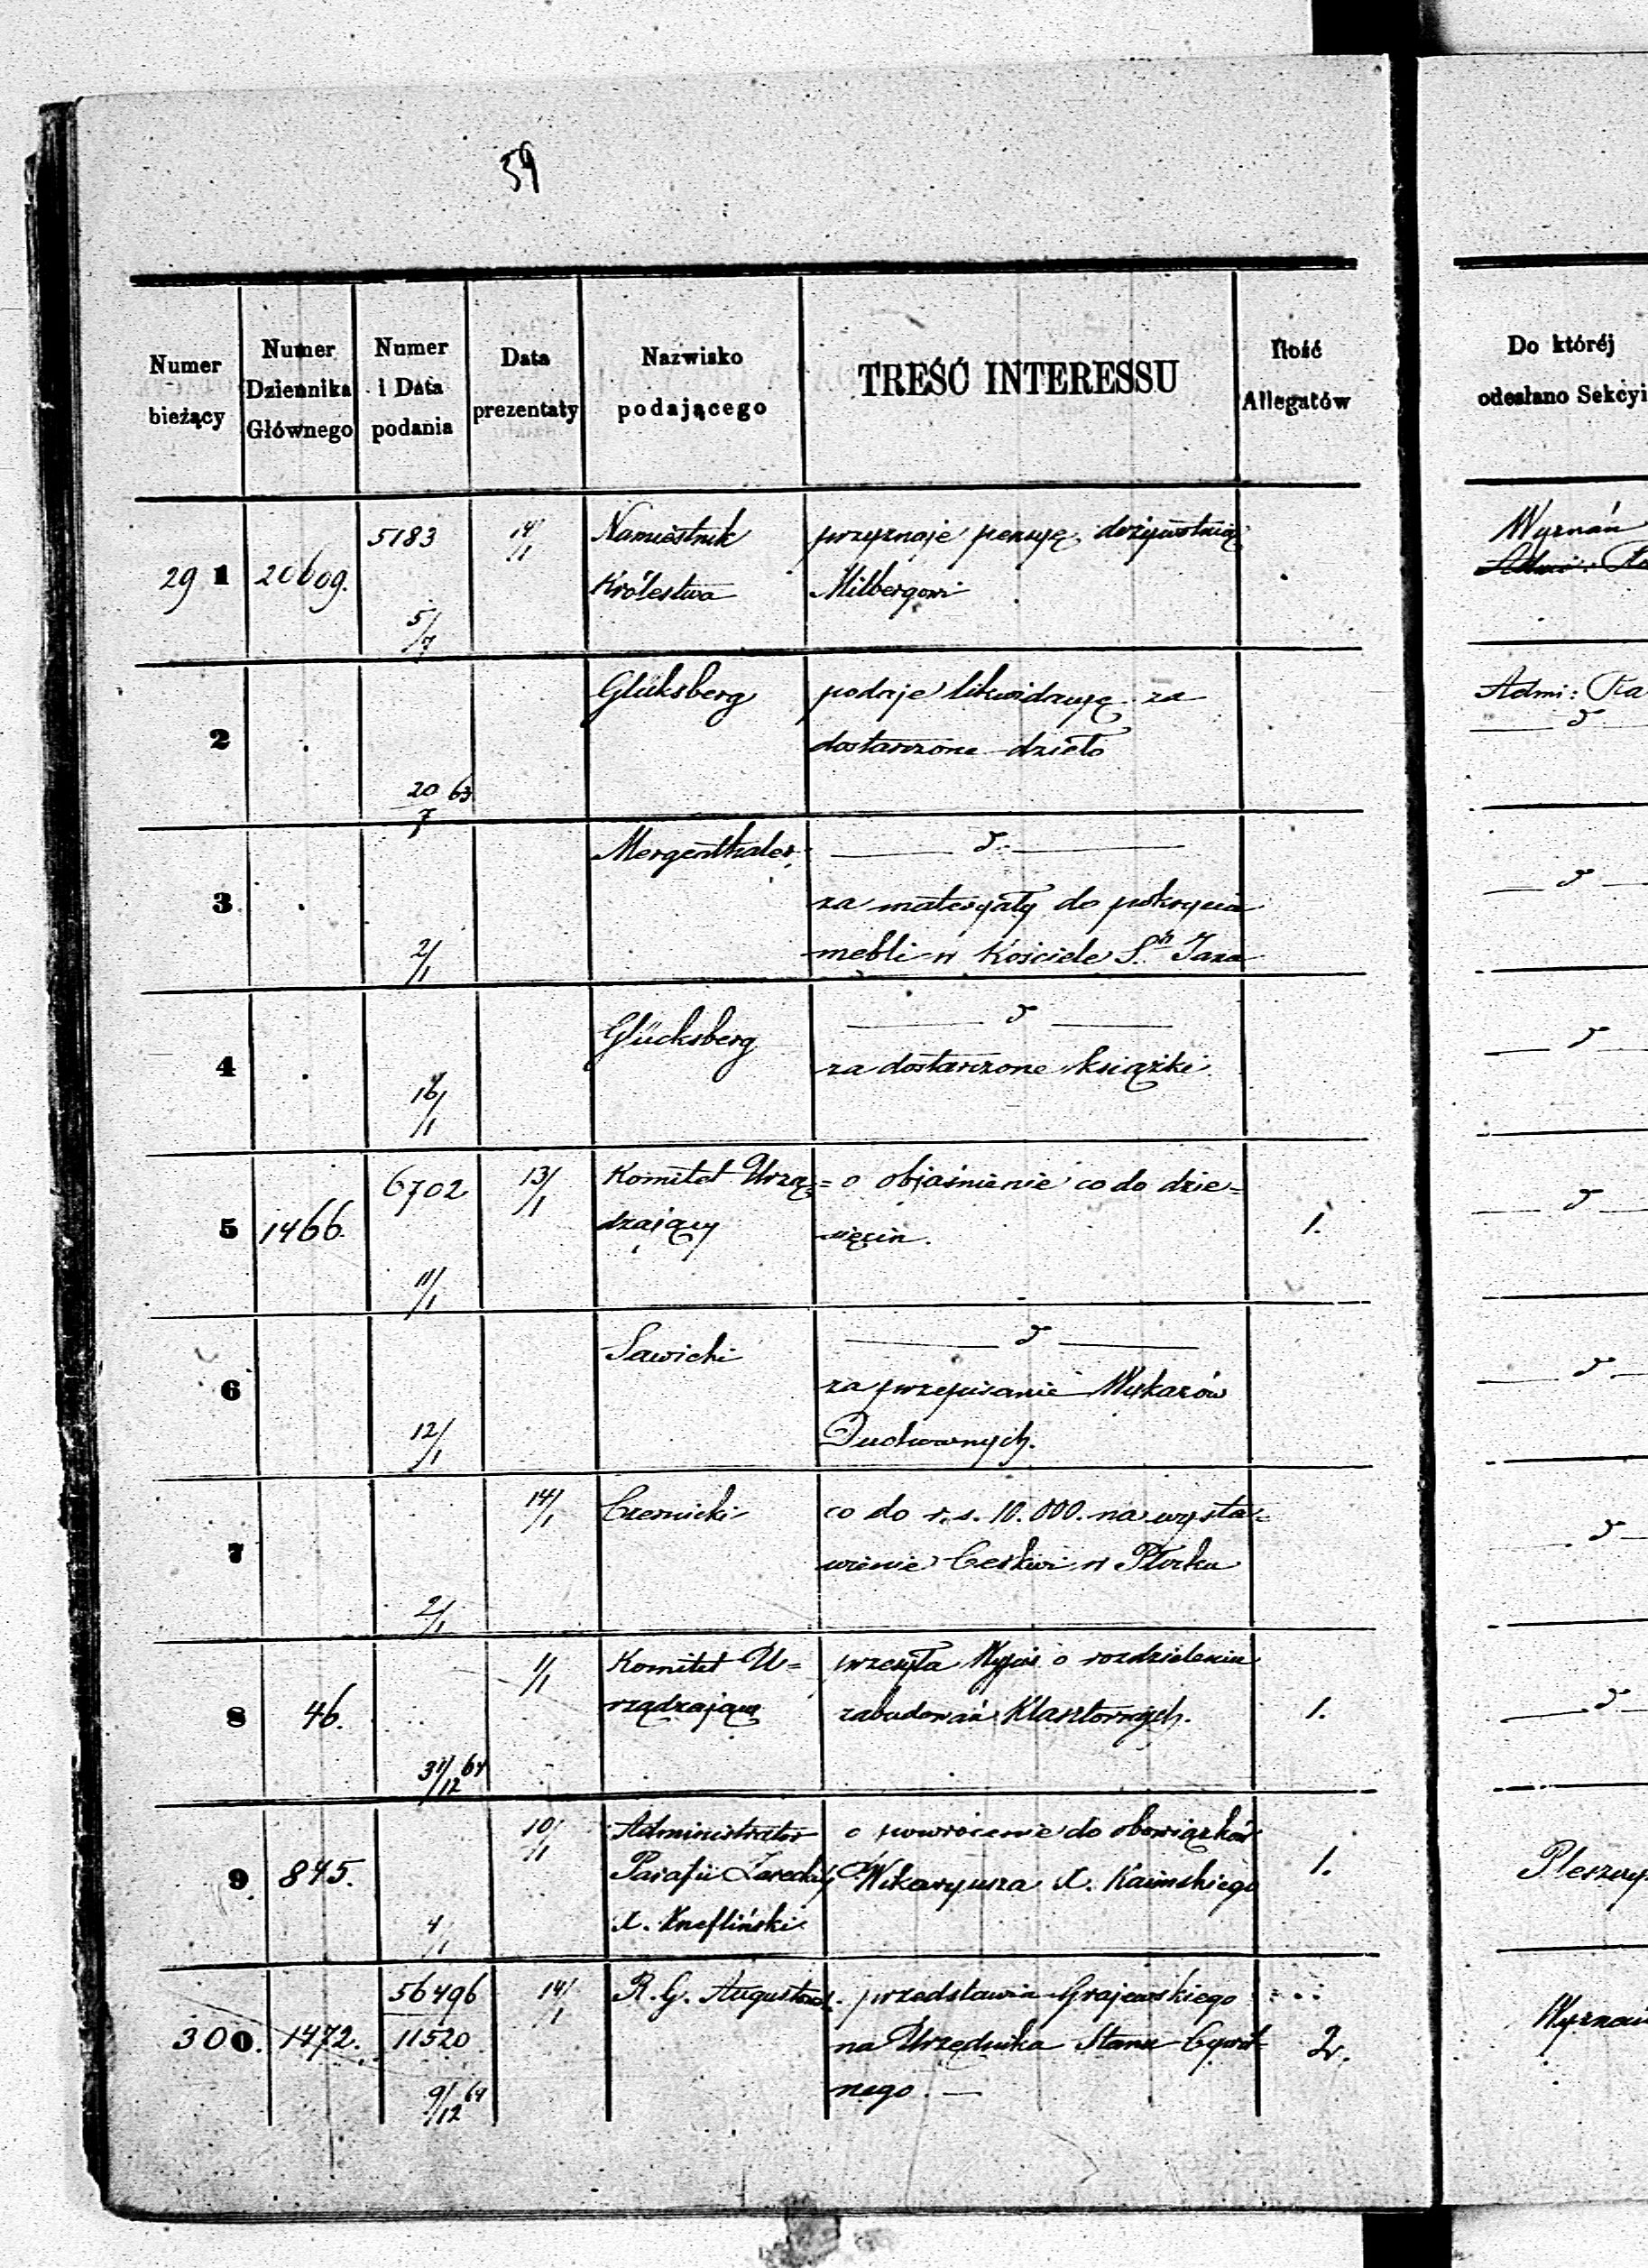 39
Numer bieżący
Numer Dziennika Głównego
Numer i Data podania
Data prezentaty
Nazwisko podającego
TREŚĆ INTERESSU
Ilość Allegatów
Do któréj odesłano Sekcyi
291 20609. 5183 5/7 14/1 Namiestnik Królestwa
przyznaje pensyę dożywotnią
Milbergowi
Wyznań
2 20/7 63 Glüksberg
podaje likwidacyę za
dostarczone dzieło
Admi:
3 2/1 Mergenthaler
za materyały do pokrycia
mebli w Kościele S.n Jana
4 16/1 Glücksberg
za dostarczone książki
5 1466. 6702 11/1 13/1 Komitet Urzą=
dzający
o objaśnienie co do dzie=
sięcin. 1.
6 12/1 Sawicki
za przepisanie Wykazów
Duchownych.
7 2/1 14/1 Czernicki
co do r. s. 10.000. na wysta=
wienie Cerkwi w Płocku
8 46. 31/12 64 1/1 Komitet U=
rządzający
przesyła Wypis o rozdzieleniu
zabudowań Klasztornych. 1.
9 845. 4/1 10/1 Administrator
Parafii Zareckiej
X. Knefliński
o powrócenie do obowiązków
Wikaryusza X. Kaimskiego 1.
300. 1472. 56496
11520 9/12 64 14/1 R. G. Augustows.
przedstawia Grajewskiego
na Urzędnika Stanu Cywil=
nego. — 2.